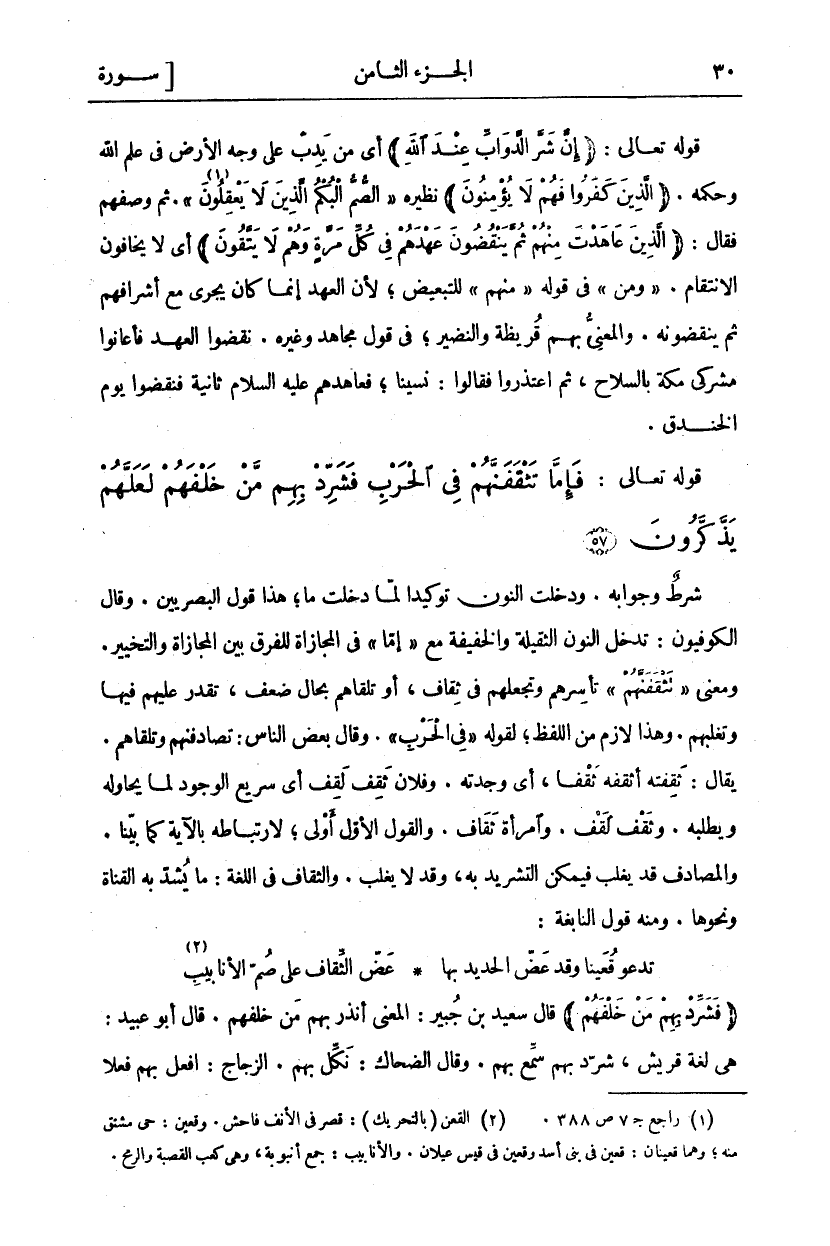 ٣٠ الجزء الثامن [ سورة
قوله تعالى : ﴿ إِنَّ شَرَّ الدَّوَابِّ عِنْدَ ٱللَّهِ ﴾ أى من يَدِبّ على وجه الأرض فى علم الله
وحكمه . ﴿ الَّذِينَ كَفَرُوا فَهُمْ لَا يُؤْمِنُونَ ﴾ نظيره « الصُّمُّ الْبُكْمُ الَّذِينَ لَا يَعْقِلُونَ (١) ». ثم وصفهم
فقال : ﴿ الَّذِينَ عَاهَدْتَ مِنْهُمْ ثُمَّ يَنْقُضُونَ عَهْدَهُمْ فِى كُلِّ مَرَّةٍ وَهُمْ لَا يَتَّقُونَ ﴾ أى لا يخافون
الانتقام . « ومن » فى قوله « منهم » للتبعيض ؛ لأن العهد إنما كان يجرى مع أشرافهم
ثم ينقضونه . والمعنىُّ بهم قُريظة والنضير ؛ فى قول مجاهد وغيره . نقضوا العهد فأعانوا
مشركى مكة بالسلاح ، ثم اعتذروا فقالوا : نسينا ؛ فعاهدهم عليه السلام ثانية فنقضوا يوم
الخندق .
قوله تعالى : فَإِمَّا تَثْقَفَنَّهُمْ فِى ٱلْحَرْبِ فَشَرِّدْ بِهِم مَّنْ خَلْفَهُمْ لَعَلَّهُمْ
يَذَّكَّرُونَ ٥٧
شرطٌ وجوابه . ودخلت النون توكيدا لمّا دخلت ما ؛ هذا قول البصريين . وقال
الكوفيون : تدخل النون الثقيلة والخفيفة مع « إمّا » فى المجازاة للفرق بين المجازاة والتخيير .
ومعنى « تَثْقَفَنَّهُمْ » تأسرهم وتجعلهم فى ثِقاف ، أو تلقاهم بحال ضعف ، تقدر عليهم فيها
وتغلبهم . وهذا لازم من اللفظ ؛ لقوله « فِى الْحَرْبِ » . وقال بعض الناس : تصادفنهم وتلقاهم .
يقال : ثَقِفته أثقفه ثَقْفا ، أى وجدته . وفلان ثَقِف لَقِف أى سريع الوجود لما يحاوله
ويطلبه . وثَقْف لَقْف . وٱمرأة ثَقَاف . والقول الأوّل أَوْلى ؛ لارتباطه بالآية كما بيّنا .
والمصادف قد يغلب فيمكن التشريد به ، وقد لا يغلب . والثقاف فى اللغة : ما يُشدّ به القناة
ونحوها . ومنه قول النابغة :
تدعو قُعَينا وقد عَضّ الحديد بها * عَضّ الثِّقاف على صُمّ الأنابيبِ (٢)
﴿ فَشَرِّدْ بِهِمْ مَنْ خَلْفَهُمْ ﴾ قال سعيد بن جُبير : المعنى أنذر بهم مَن خلفهم . قال أبو عبيد :
هى لغة قريش ، شرّد بهم سمِّع بهم . وقال الضحاك : نَكِّل بهم . الزجاج : افعل بهم فعلا
(١) راجع جـ ٧ ص ٣٨٨ . (٢) القعن (بالتحريك) : قصر فى الأنف فاحش . وقعين : حى مشتق
منه ؛ وهما قعينان : قعين فى بنى أسد وقعين فى قيس عيلان . والأنابيب : جمع أنبوبة ، وهى كعب القصبة والرمح .